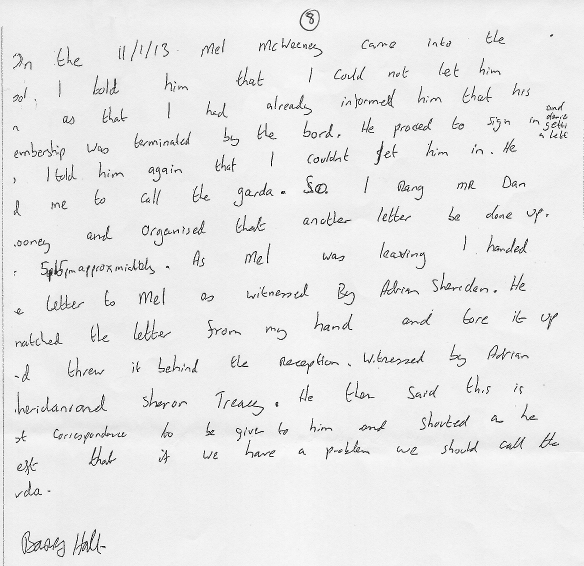 8
On the 11/1/13 Mel McWeeney came into the
ool. I told him that I could not let him
n as that I had already informed him that his
embership was terminated by the bord. He proceed to sign in and
, I told him again that I couldnt let him in. He
d me to call the garda. So I Rang mr Dan
ooney and organised that another letter be done up.
: approximiately. As Mel was leaving I handed
e letter to Mel as witnessed By Adrian Sheridan. He
natched the letter from my hand and tore it up
d threw it behind the Reception. Witnessed by Adrian
heridan and Sharon Treacy. He then said this is
ot correspondence to be give to him and shouted as he
eft that if we have a problem we should call the
rda.
Barry Halt